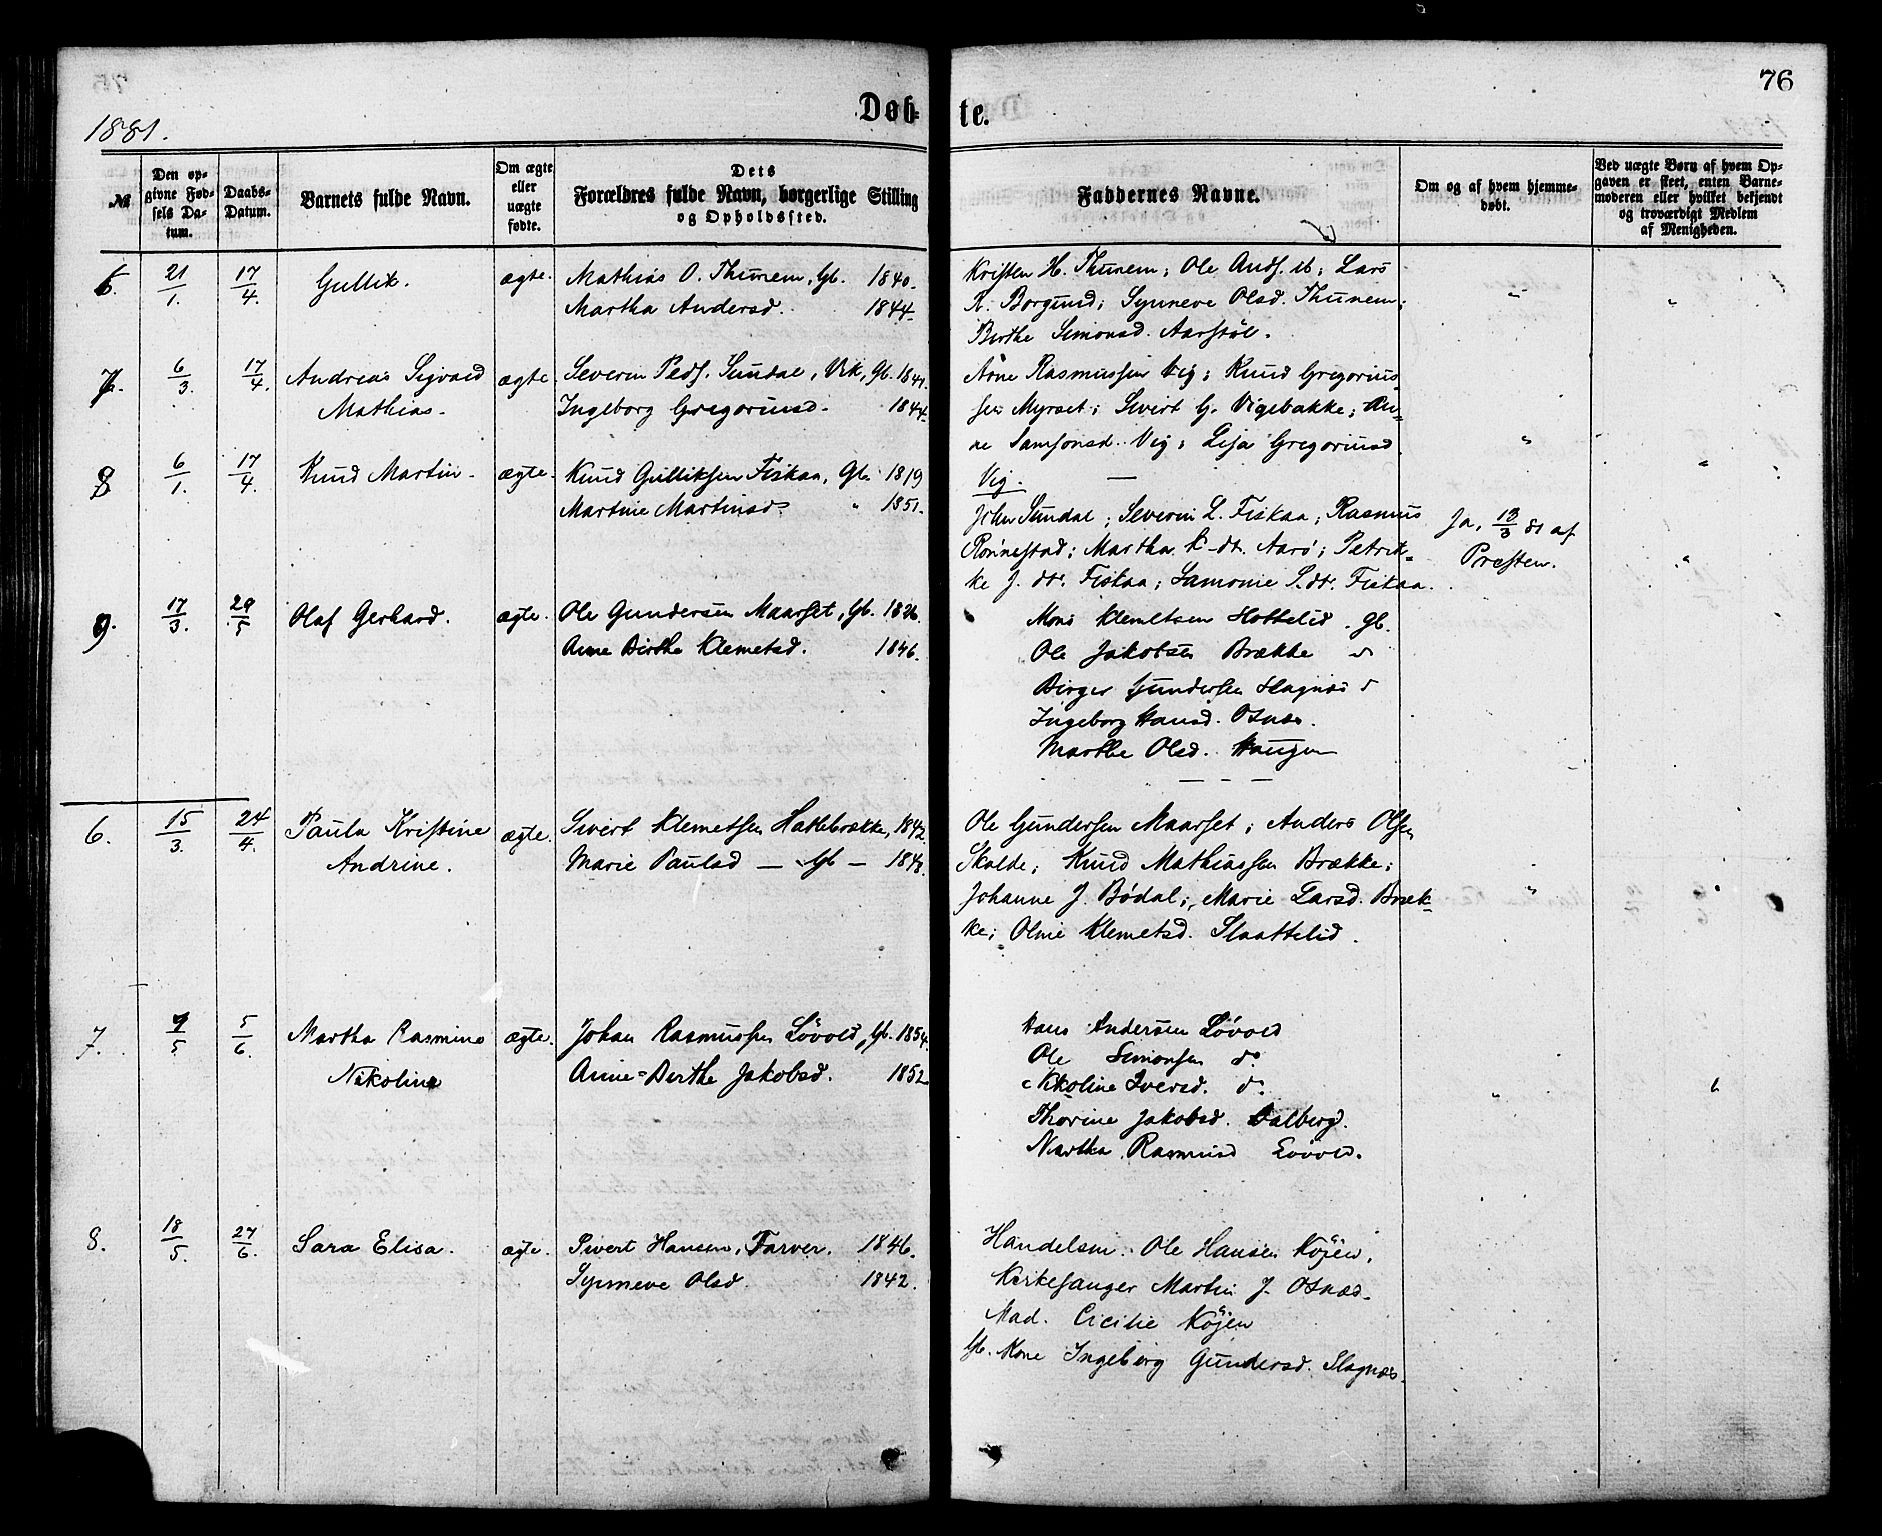 76
1881.
Døb-
te.
№
Den op-
givne Fød-
sels Da-
tum.
Daabs-
Datum.
Barnets fulde Navn.
Om ægte
eller
uægte
fødte.
Dets
Forældres fulde Navn, borgerlige Stilling
og Opholdssted.
Faddernes Navne.
Om og af hvem hjemme-
døbt.
Ved uægte Børn af hvem Op-
gaven er skeet, enten Barne-
moderen eller hvilket bekjendt
og troværdigt Medlem
af Menigheden.
6. 21/1. 17/4. Gullik. ægte. Mathias O. Thunem, Gb. 1840.
Martha Andersd. 1844.
Kristen H. Thunem; Ole Ands. ib; Lars
R. Borgund; Synneve Olsd. Thunem;
Birthe Simonsd. Aarstöl.
7. 6/3. 17/4. Andreas Sigvald ægte Severin Peds. Sundal, Vik, Gb. 1841.
Mathias. Ingeborg Gregoriusd. 1844.
Arne Rasmussen Vig; Knud Gregorius-
sen Myrset; Sivert G. Vigebakke; An-
ne Samsonsd. Vig; Lisa Gregoriusd.
Vig.
8 6/1. 17/4. Knud Martin. ægte. Knud Gulliksen Fiskaa, Gb. 1819
Martine Martinsd. " 1851.
John Sundal; Severin L. Fiskaa; Rasmus
Rönnestad; Martha K-dt. Aarö; Petrik-
ke J. dt. Fiskaa; Lamonie S. dt. Fiskaa.
Ja, 13/3 81 af
Præsten.
9. 17/3. 29/5 Olaf Gerhard. ægte. Ole Gundersen Maarset, Gb. 1826.
Anne Birthe Klemetsd. 1846.
Mons Klemetsen Hottelid. Gb.
Ole Jakobsen Brække
Birger Gundersen Slagnæs
Ingeborg Hansd. Osnæs.
Marthe Olsd. Haugen
6. 15/3. 24/4. Paula Kristine ægte. Sivert Klemetsen Hatlebrække, 1842.
Andrine. Marie Paulsd — Gb — 1848.
Ole Gundersen Maarset; Anders Olsen
Skolde; Knud Mathiassen Brække;
Johanne J. Bödal; Marie Larsd. Bræk-
ke; Oline Klemetsd. Slaattelid.
7. 9/5 5/6. Martha Rasmine ægte. Johan Rasmussen Lövold, Gb. 1854.
Nikoline Anne-Berthe Jakobsd. 1852
Hans Andersen Lövold
Ole Simonsen do
Nikoline Iversd. do
Thorine Jakobsd. Dalberg.
Martha Rasmusd Lövold.
8. 18/5. 27/6. Sara Elisa. ægte. Sivert Hansen, Farver. 1846.
Synneve Olsd. 1842.
Handelsm. Ole Hansen Köjen,
Kirkesanger Martin J. Osnæs.
Mad. Cicilie Köjen
Gb. Kone Ingeborg Gundersd. Slagnæs.